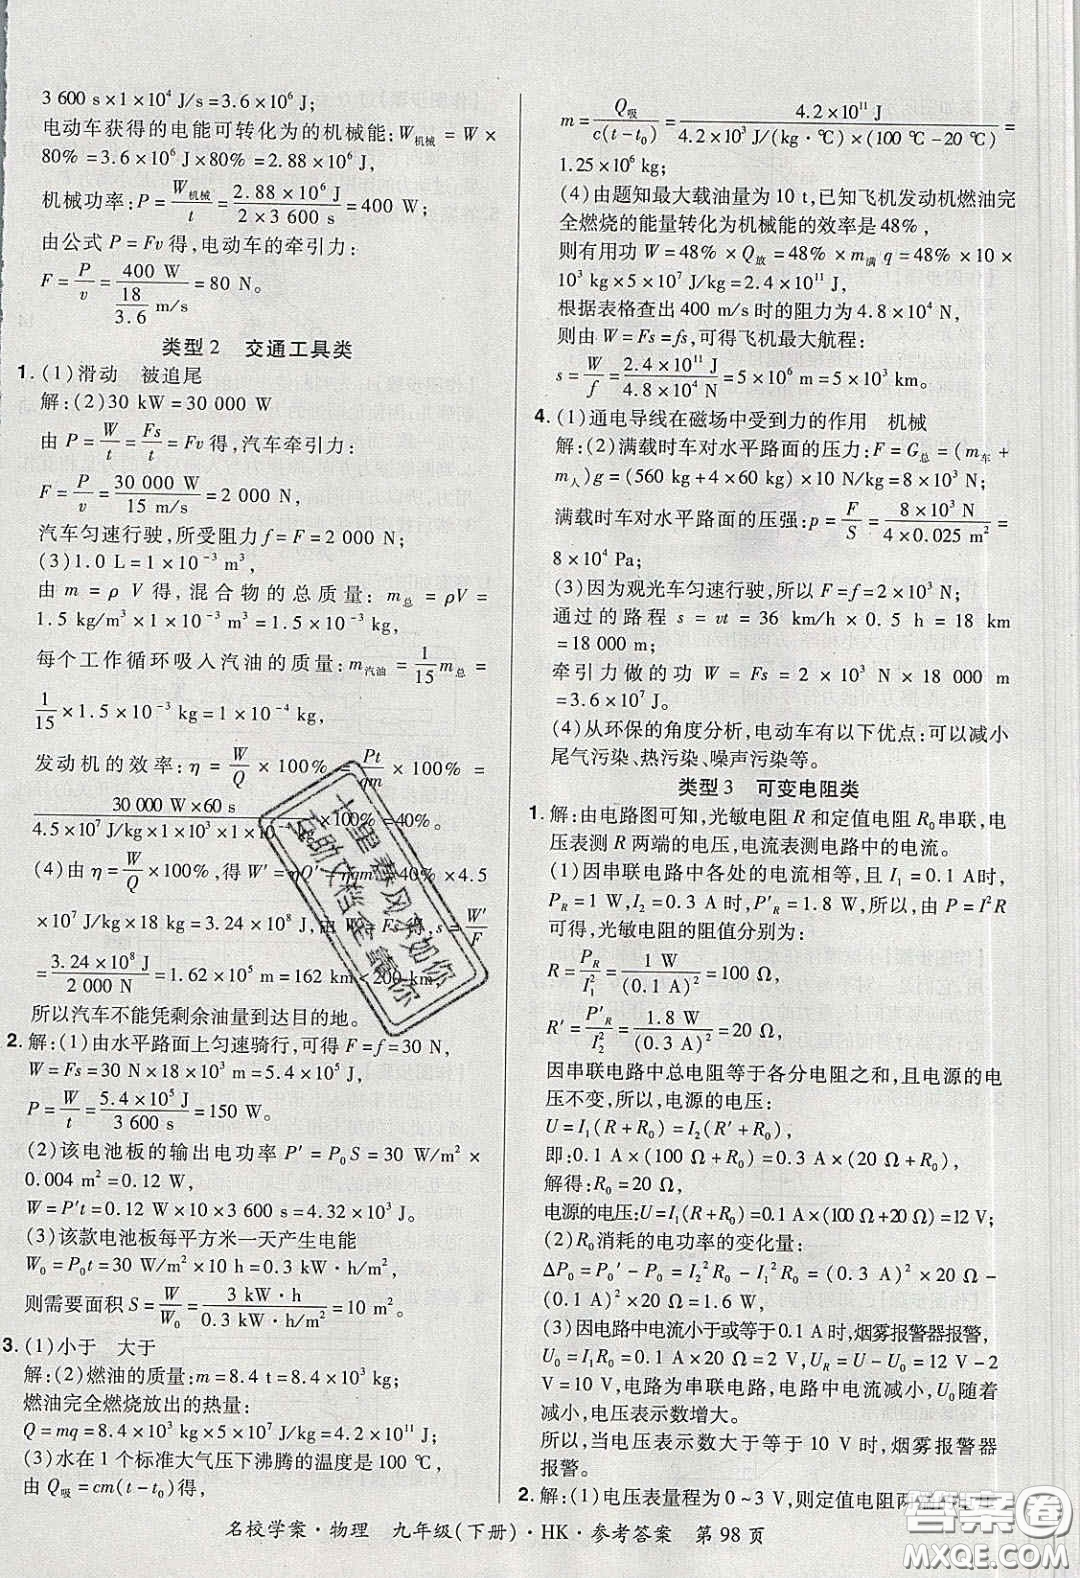 3 600 s×1×10⁴ J/s=3.6×10⁶ J;
电动车获得的电能可转化为的机械能:W机械=W×
80%=3.6×10⁶ J×80%=2.88×10⁶ J,
机械功率:P=W机械/t=2.88×10⁶ J/(2×3 600 s)=400 W;
由公式 P=Fv 得,电动车的牵引力:
F=P/v=400 W/(18/3.6 m/s)=80 N。
类型2 交通工具类
1.(1)滑动 被追尾
解:(2)30 kW=30 000 W
由 P=W/t=Fs/t=Fv 得,汽车牵引力:
F=P/v=30 000 W/(15 m/s)=2 000 N,
汽车匀速行驶,所受阻力 f=F=2 000 N;
(3)1.0 L=1×10⁻³ m³,
由 m=ρV 得,混合物的总质量:m总=ρV=
1.5 kg/m³×1×10⁻³ m³=1.5×10⁻³ kg,
每个工作循环吸入汽油的质量:m汽油=1/15 m总=
1/15×1.5×10⁻³ kg=1×10⁻⁴ kg,
发动机的效率:η=W/Q×100%=Pt/qm×100%=
30 000 W×60 s/(4.5×10⁷ J/kg×1×10⁻⁴ kg ×100%=40%。
(4)由 η=W/Q×100%,得 W′=ηQ′=ηqm=40%×4.5
×10⁷ J/kg×18 kg=3.24×10⁸ J,由 W=Fs 得,s=W′/F
=3.24×10⁸ J/2 000 N=1.62×10⁵ m=162 km<200 km,
所以汽车不能凭剩余油量到达目的地。
2.解:(1)由水平路面上匀速骑行,可得 F=f=30 N,
W=Fs=30 N×18×10³ m=5.4×10⁵ J,
P=W/t=5.4×10⁵ J/3 600 s=150 W。
(2)该电池板的输出电功率 P′=P₀S=30 W/m²×
0.004 m²=0.12 W,
W=P′t=0.12 W×10×3 600 s=4.32×10³ J。
(3)该款电池板每平方米一天产生电能
W₀=P₀t=30 W×10 h=0.3 kW·h,
则需要面积 S=W/W₀=3 kW·h/(0.3 kW·h/m²)=10 m²。
3.(1)小于 大于
解:(2)燃油的质量:m=8.4 t=8.4×10³ kg,
燃油完全燃烧放出的热量:
Q=mq=8.4×10³ kg×5×10⁷ J/kg=4.2×10¹¹ J
(3)水在1个标准大气压下沸腾的温度是100 ℃,
由 Q吸=cm(t−t₀)得,
m=Q吸/c(t−t₀)=4.2×10¹¹ J/(4.2×10³ J/(kg·℃)×(100 ℃−20 ℃))=
1.25×10⁶ kg;
(4)由题知最大载油量为10 t,已知飞机发动机燃油完
全燃烧的能量转化为机械能的效率是48%,
则有用功 W=48%×Q放=48%×m满q=48%×10×
10³ kg×5×10⁷ J/kg=2.4×10¹¹ J,
根据表格查出400 m/s时的阻力为4.8×10⁴ N,
则由 W=Fs=fs,可得飞机最大航程:
s=W/f=2.4×10¹¹ J/4.8×10⁴ N=5×10⁶ m=5×10³ km。
4.(1)通电导线在磁场中受到力的作用 机械
解:(2)满载时车对水平路面的压力:F=G总=(m车+
m人)g=(560 kg+4×60 kg)×10 N/kg=8×10³ N;
满载时车对水平路面的压强:p=F/S=8×10³ N/(4×0.025 m²)=
8×10⁴ Pa;
(3)因为观光车匀速行驶,所以 F=f=2×10³ N;
通过的路程 s=vt=36 km/h×0.5 h=18 km
=18 000 m;
牵引力做的功 W=Fs=2×10³ N×18 000 m
=3.6×10⁷ J。
(4)从环保的角度分析,电动车有以下优点:可以减小
尾气污染、热污染、噪声污染等。
类型3 可变电阻类
1.解:由电路图可知,光敏电阻R和定值电阻R₀串联,电
压表测R两端的电压,电流表测电路中的电流。
(1)因串联电路中各处的电流相等,且 I₁=0.1 A时,
P_R=1 W,I₂=0.3 A时,P′_R=1.8 W,所以,由 P=I²R
可得,光敏电阻的阻值分别为:
R=P_R/I₁²=1 W/(0.1 A)²=100 Ω,
R′=P′_R/I₂²=1.8 W/(0.3 A)²=20 Ω,
因串联电路中总电阻等于各分电阻之和,且电源的电
压不变,所以,电源的电压:
U=I₁(R+R₀)=I₂(R′+R₀),
即:0.1 A×(100 Ω+R₀)=0.3 A×(20 Ω+R₀),
解得:R₀=20 Ω,
电源的电压:U=I₁(R+R₀)=0.1 A×(100 Ω+20 Ω)=12 V;
(2)R₀消耗的电功率的变化量:
ΔP₀=P₀′−P₀=I₂²R₀−I₁²R₀=(0.3 A)²×20 Ω−
(0.1 A)²×20 Ω=1.6 W,
(3)因电路中电流小于或等于0.1 A时,烟雾报警器报警,
U₀=I₁R₀=0.1 A×20 Ω=2 V,U_R=U−U₀=12 V−2
V=10 V,电路为串联电路,电路中电流减小,U₀随着
减小,电压表示数增大。
所以,电压表示数大于等于10 V时,烟雾报警器
报警。
2.解:(1)电压表量程为0~3 V,则定值电阻两
名校学案·物理 九年级(下册)·HK·参考答案 第98页
十里春风不如你
互助文档全靠你
答案圈
MXQE.COM